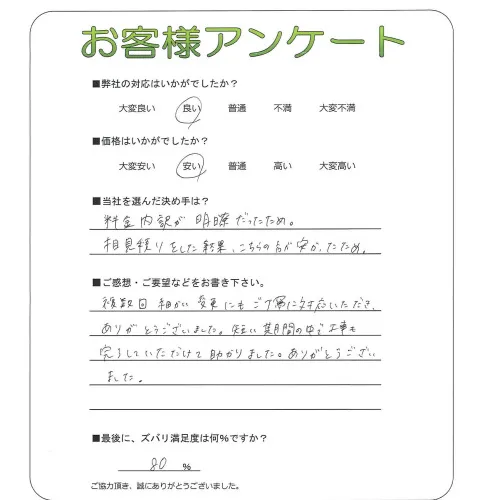 お客様アンケート
■弊社の対応はいかがでしたか?
大変良い 良い 普通 不満 大変不満
■価格はいかがでしたか?
大変安い 安い 普通 高い 大変高い
■当社を選んだ決め手は?
料金内訳が明瞭だったため。
相見積りをした結果、こちらの方が安かったため。
■ご感想・ご要望などをお書き下さい。
複数回細かい変更にもご丁寧に対応いただき、
ありがとうございました。短い期間の中で工事も
完了していただけて助かりました。ありがとうござい
ました。
■最後に、ズバリ満足度は何%ですか?
80 %
ご協力頂き、誠にありがとうございました。